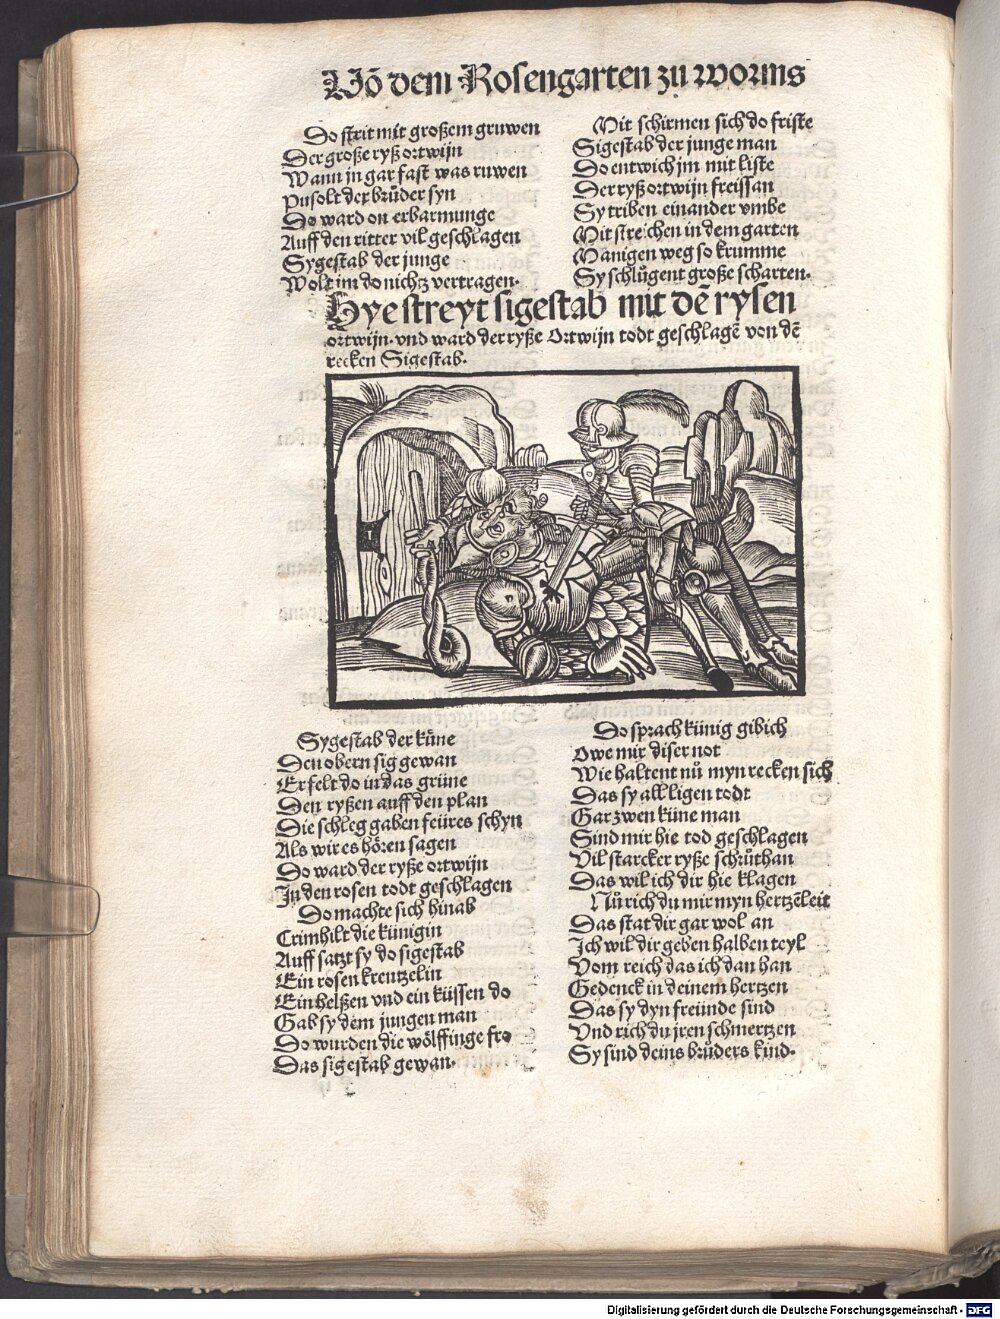 Uō dem Rosengarten zu worms
Do strit mit großem gruwen
Der große ryß ortwijn
Wann jn gar fast was ruwen
Pusolt der brůder syn
Do ward on erbarmunge
Auff den ritter vil geschlagen
Sygestab der junge
Wolt im do nichtz vertragen.
Mit schirmen sich do friste
Sigestab der junge man
Do entwich jm mit liste
Der ryß ortwijn freissan
Sy triben einander vmbe
Mit streichen in dem garten
Manigen weg so krumme
Sy schlůgent große scharten.
Hye streyt sigestab mit dē rysen
ortwijn. vnd ward der ryße Ortwijn todt geschlagē von dē
recken Sigestab.
Sygestab der kůne
Den obern sig gewan
Er felt do in das grüne
Den ryßen auff den plan
Die schleg gaben feüres schyn
Als wir es hören sagen
Do ward der ryße ortwijn
In den rosen todt geschlagen
Do machte sich hinab
Crimhilt die künigin
Auff satzt sy do sigestab
Ein rosen krentzelin
Ein helßen vnd ein küssen do
Gab sy dem jungen man
Do wurden die wölffinge fro
Das sigestab gewan.
Do sprach künig gibich
Owe mir diser not
Wie haltent nů myn recken sich
Das sy all ligen todt
Gar zwen küne man
Sind mir hie tod geschlagen
Vil starcker ryße schrůthan
Das wil ich dir hie klagen
Nů rich du mir myn hertzēleit
Das stat dir gar wol an
Ich wil dir geben halben teyl
Vom reich das ich dan han
Gedenck in deinem hertzen
Das sy dyn freünde sind
Vnd rich du jren schmertzen
Sy sind deins brůders kind.
Digitalisierung gefördert durch die Deutsche Forschungsgemeinschaft - DFG